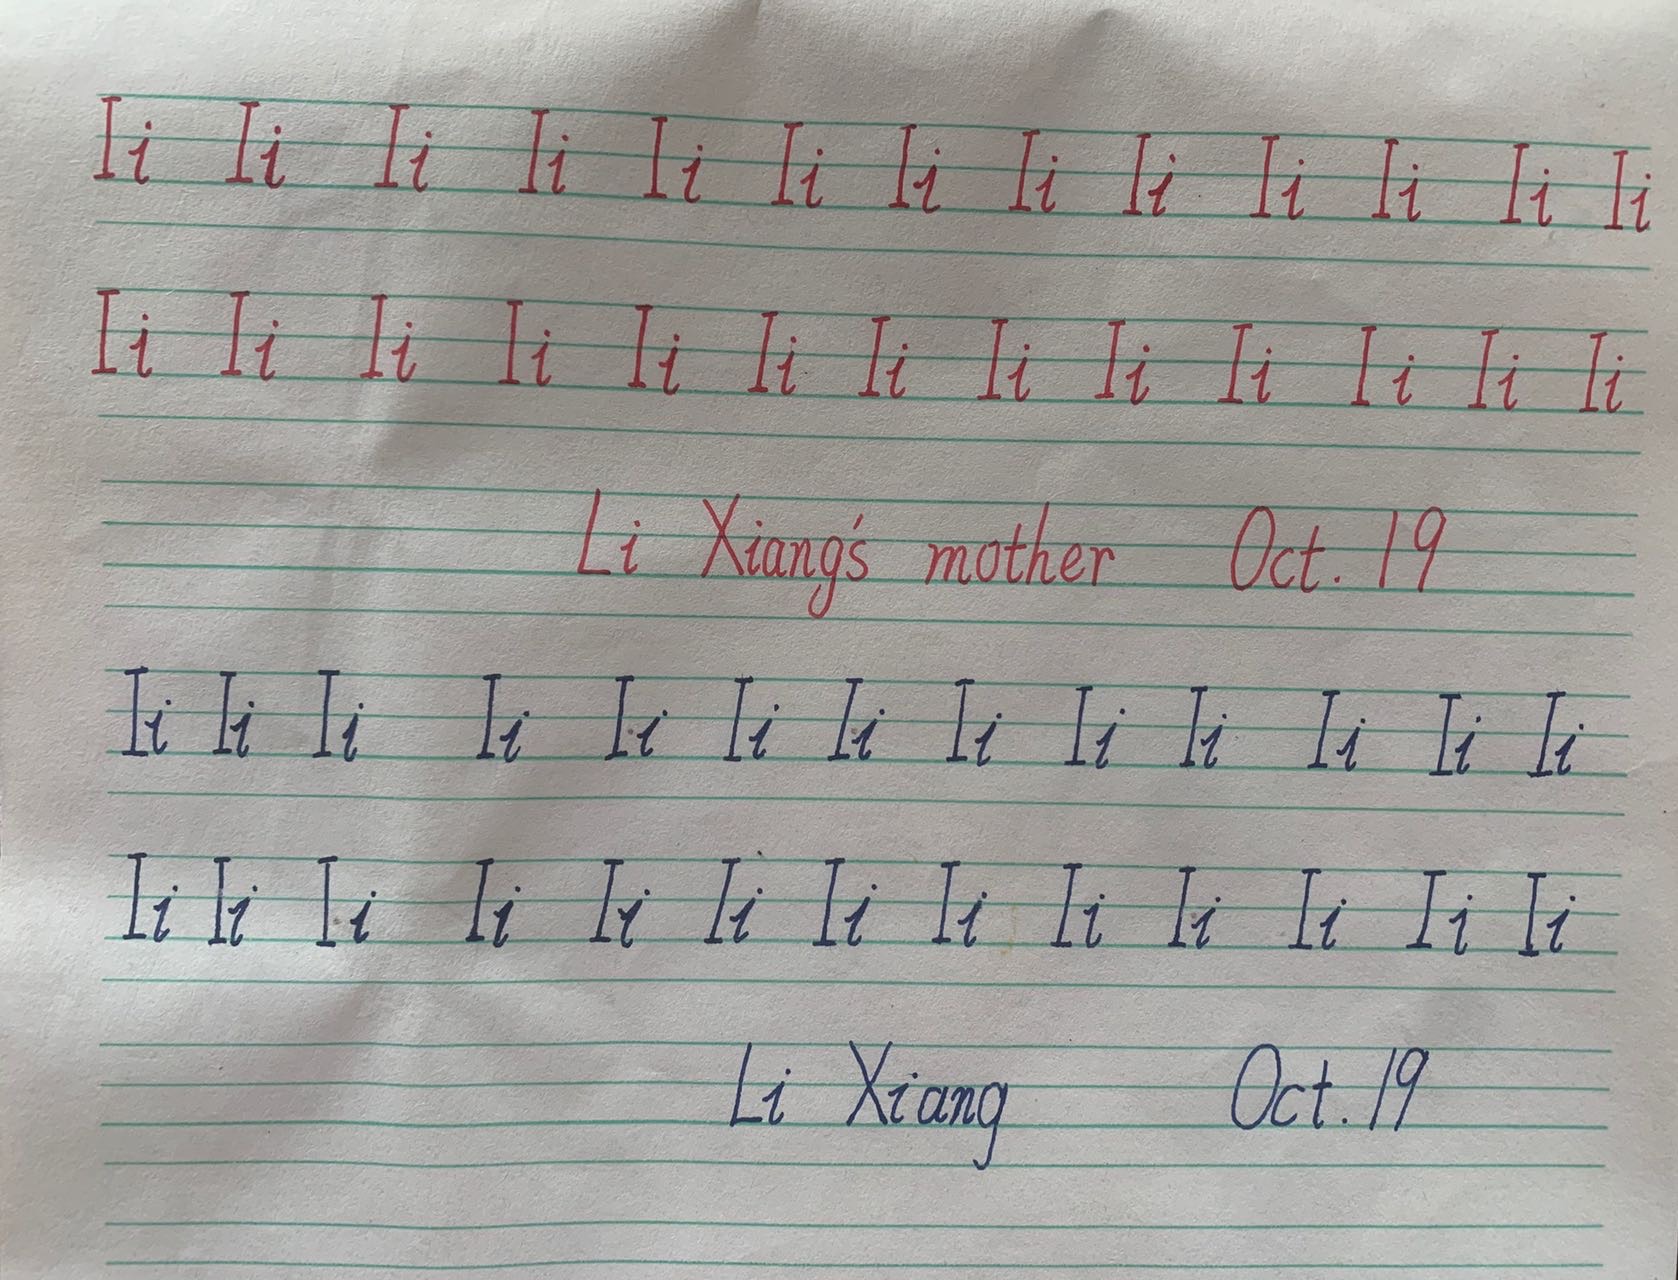 Ii Ii Ii Ii Ii Ii Ii Ii Ii Ii Ii Ii Ii
Ii Ii Ii Ii Ii Ii Ii Ii Ii Ii Ii Ii Ii
Li Xiang's mother Oct. 19
Ii Ii Ii Ii Ii Ii Ii Ii Ii Ii Ii Ii Ii
Ii Ii Ii Ii Ii Ii Ii Ii Ii Ii Ii Ii Ii
Li Xiang Oct. 19